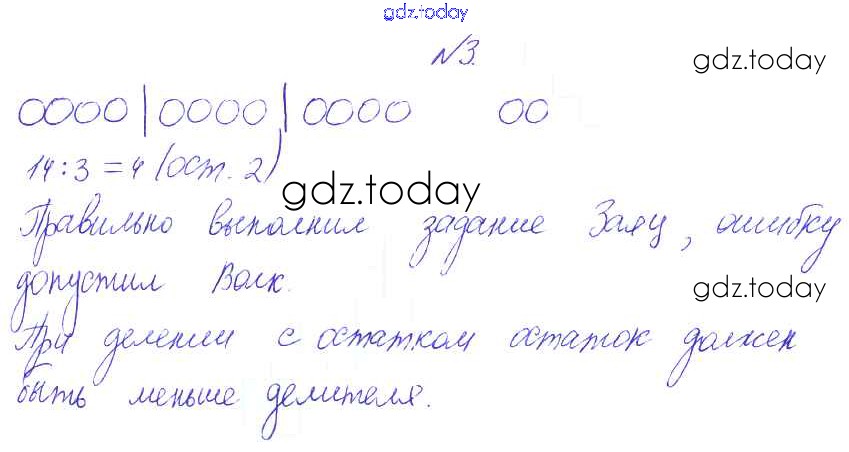 gdz.today
№3.
gdz.today
14:3=4 (ост. 2)
gdz.today
Правильно выполнил задание Заяц, ошибку
допустил Волк.
gdz.today
При делении с остатком остаток должен
быть меньше делителя.